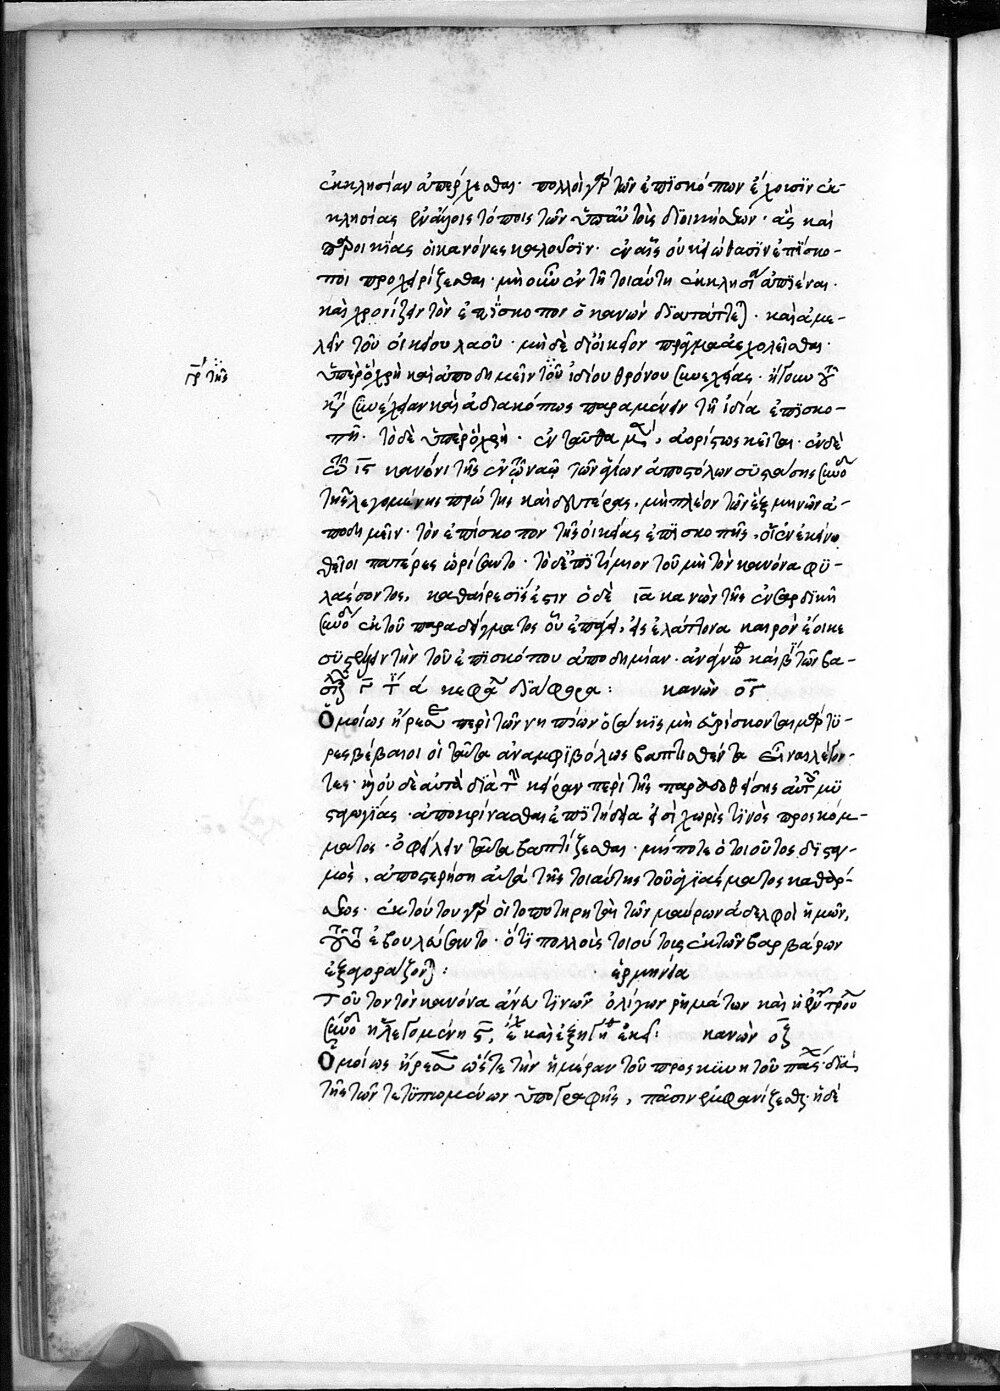 ἐκκλησίαν ἀπέρχεσθαι· πολλοὶ γὰρ τῶν ἐπισκόπων ἔχουσιν ἐκ-
κλησίας ἐν ἄλλοις τόποις τῶν ὑπ' αὐτοὺς διοικήσεων· ἃς καὶ
παροικίας οἱ κανόνες καλοῦσιν· ἐν αἷς οὐκ εἰώθασιν ἐπίσκο-
ποι προχειρίζεσθαι· μὴ οὖν ἐν τῇ τοιαύτῃ ἐκκλησίᾳ ἀπιέναι·
καὶ χρονίζειν τὸν ἐπίσκοπον ὁ κανὼν διατάττεται· καὶ ἀμε-
λεῖν τοῦ οἰκείου λαοῦ· μηδὲ δι' οἰκεῖον πρᾶγμα ἀσχολεῖσθαι·
γρ τῆς
ὑπερόχρη καὶ ἀποδημεῖν τοῦ ἰδίου θρόνου συνελείας· ἤγουν
συνελεῖν καὶ ἀδιακόπως παραμένειν τῇ ἰδίᾳ ἐπισκο-
πῇ· τὸ δὲ ἐνταῦθα μὲν, ἀορίστως κεῖται· ἐν δὲ
τῷ ις κανόνι τῆς ἐν τῷ ναῷ τῶν ἁγίων ἀποστόλων συστάσης συνόδου
τῆς λεγομένης πρώτης καὶ δευτέρας, μὴ πλέον τῶν ἓξ μηνῶν ἀ-
ποδημεῖν· τὸν ἐπίσκοπον τῆς οἰκείας ἐπισκοπῆς, οἱ ἐν ἐκείνῃ
θεῖοι πατέρες ὡρίσαντο· τὸ δὲ ἐπιτίμιον τοῦ μὴ τὸν κανόνα φυ-
λάσσοντος, καθαίρεσίς ἐστιν ὁ δὲ ια κανὼν τῆς ἐν σαρδικῇ
συνόδου ἐκ τοῦ παραδείγματος οὗ ἐπάγει, εἰς ἐλάττονα καιρὸν ἔοικε
συστέλλειν τὴν τοῦ ἐπισκόπου ἀποδημίαν· ἀνάγνωθι καὶ βιβλίον τῶν βα-
σιλικῶν γ τί α κεφάλαια διάφορα: κανὼν ος
Ὁμοίως ἤρεσε περὶ τῶν νηπίων ὁσάκις μὴ εὑρίσκονται μάρτυ-
ρες βέβαιοι οἱ ταῦτα ἀναμφιβόλως βαπτισθέντα εἶναι λέγον-
τες· μὴ οὐδὲ αὐτὰ διὰ τὴν περὶ τῆς παραδοθείσης αὐτοῖς μυ
σταγωγίας ἀποκρίνασθαι ἐπιτήδεια εἰσὶ χωρὶς τινὸς προσκόμ-
ματος· ὀφείλειν ταῦτα βαπτίζεσθαι· μήποτε ὁ τοιοῦτος δισταγ-
μὸς, ἀποστερήσῃ αὐτὰ τῆς τοιαύτης τοῦ ἁγιάσματος καθάρ-
σεως· ἐκ τούτου γὰρ οἱ τοποτηρηταὶ τῶν μαύρων ἀδελφοὶ ἡμῶν,
τοῦτο ἐβουλεύσαντο· ὅτι πολλοὺς τοιούτους ἐκ τῶν βαρβάρων
ἐξαγοράζονται: ἑρμηνεία
Τοῦτον τὸν κανόνα ἄνευ τινῶν ὀλίγων ῥημάτων καὶ ἡ ἐν τρούλλῳ
σύνοδος ἡ λεγομένη ϛ, ἔχει καὶ ἐξηγήθη ἐκεῖ: κανὼν οζ
Ὁμοίως ἤρεσεν ὥστε τὴν ἡμέραν τοῦ προσκυνητοῦ πάσχα διὰ
τῆς τῶν τετυπωμένων ὑπογραφῆς, πᾶσιν ἐμφανίζεσθαι· ἡ δὲ